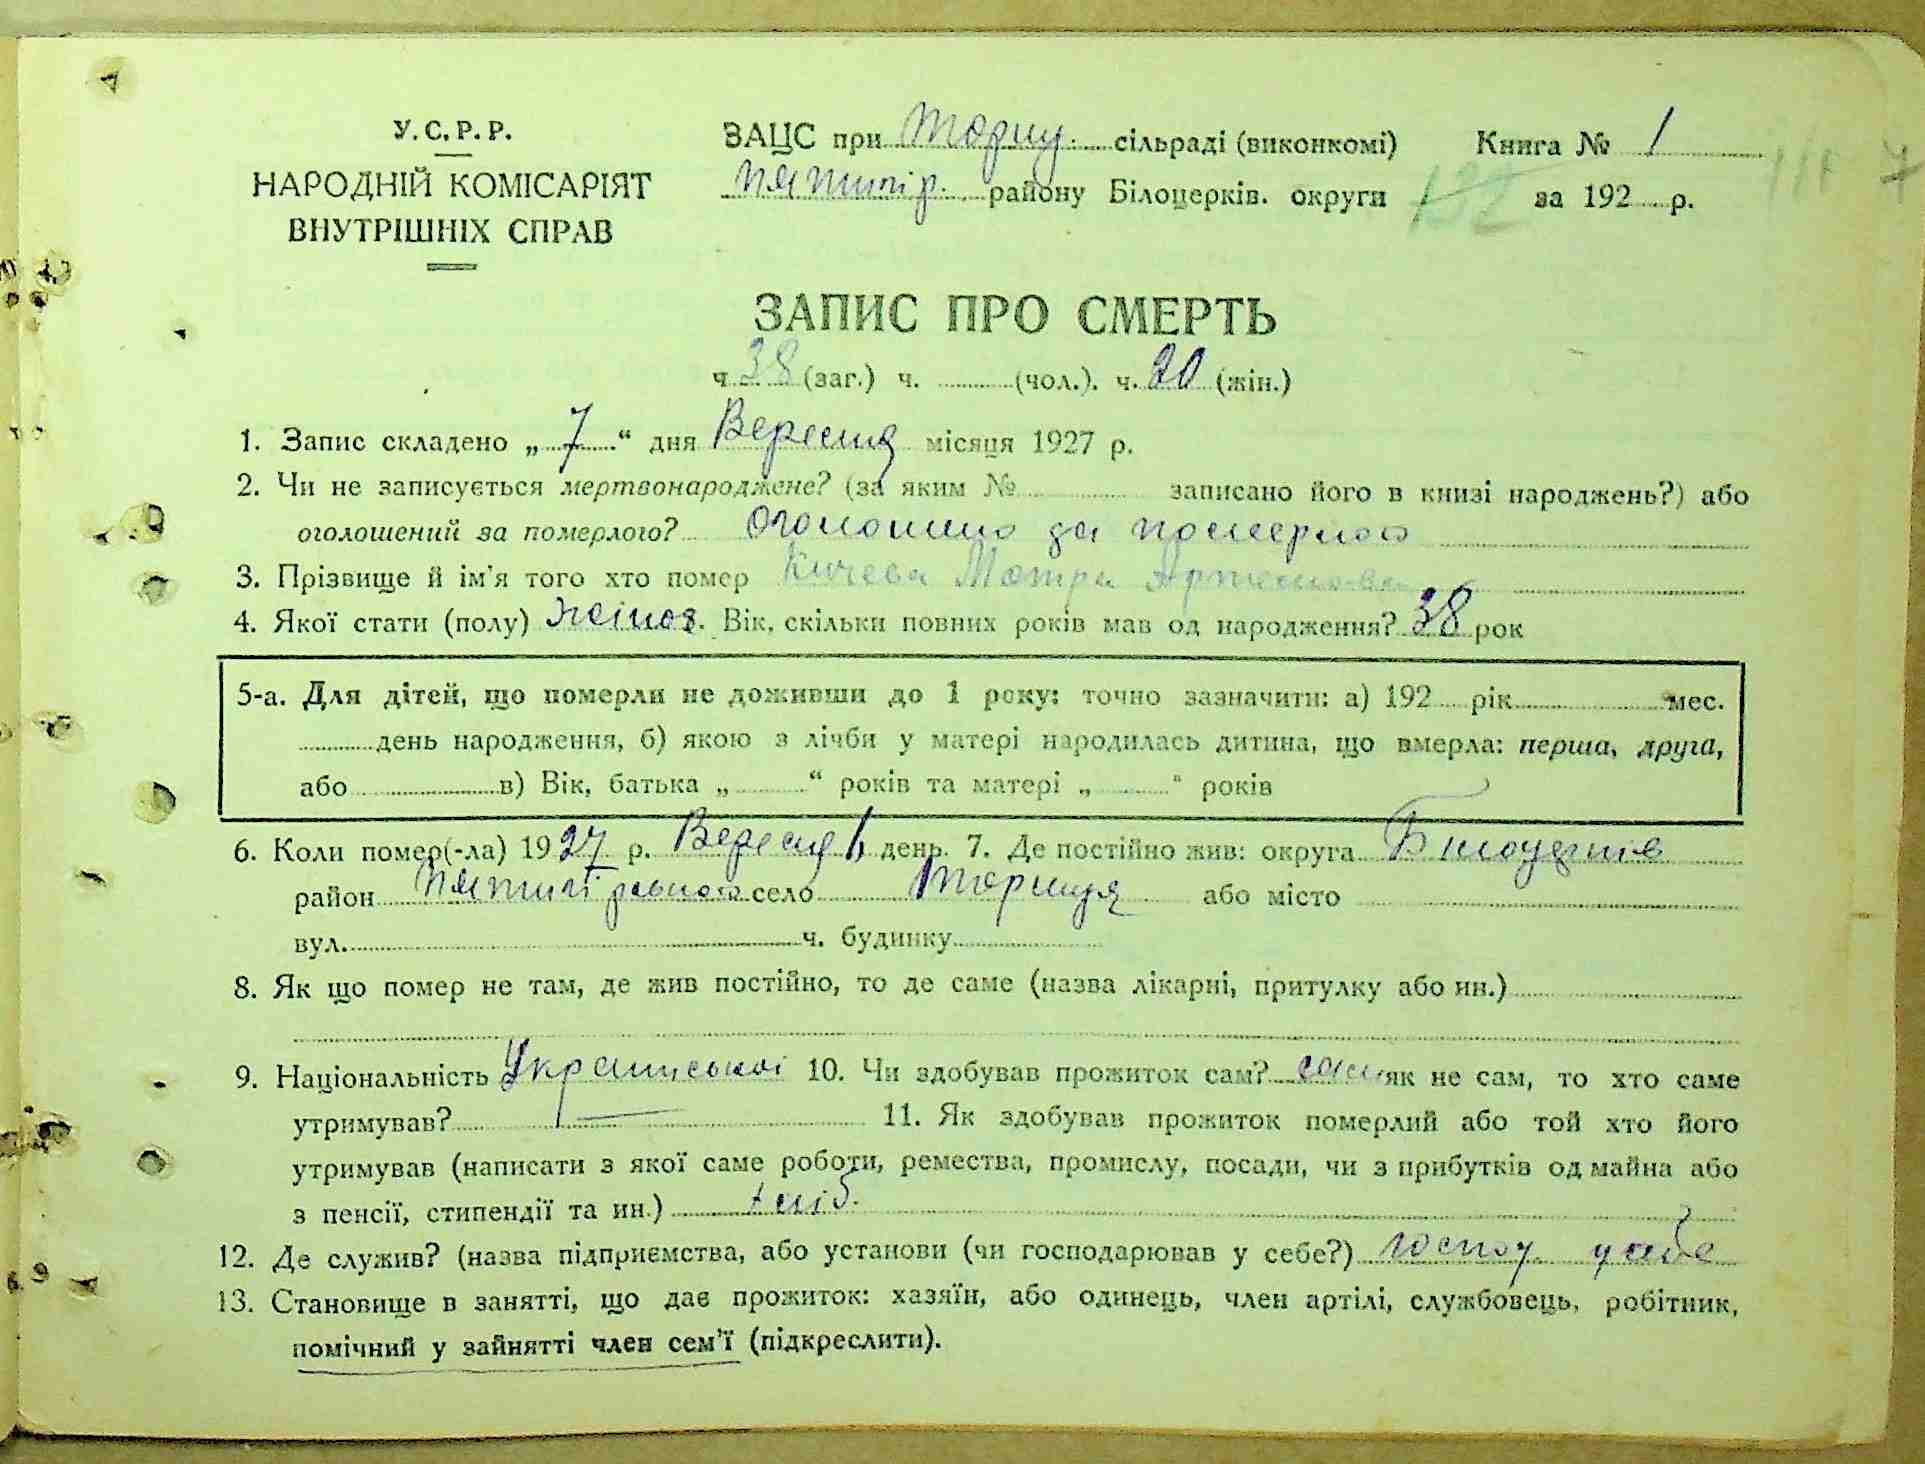 У.С.Р.Р.
НАРОДНІЙ КОМІСАРІЯТ
ВНУТРІШНІХ СПРАВ
ЗАЦС при Ториц. сільраді (виконкомі) Книга № 1
Пятигір. району Білоцерків. округи 132 за 192 р.
ЗАПИС ПРО СМЕРТЬ
ч 38 (заг.) ч. (чол.). ч. 20 (жін.)
1. Запис складено „ 7 “ дня Вересня місяця 1927 р.
2. Чи не записується мертвонароджене? (за яким № записано його в книзі народжень?) або
оголошений за померлого? Оголошено за померлого
3. Прізвище й ім'я того хто помер Мотря Артемова
4. Якої стати (полу) жіноч. Вік, скільки повних років мав од народження? 38 рок
5-а. Для дітей, що померли не доживши до 1 року: точно зазначити: а) 192 рік мес.
день народження, б) якою з лічби у матері народилась дитина, що вмерла: перша, друга,
або в) Вік, батька „ “ років та матері „ “ років
6. Коли помер(-ла) 1927 р. Вересня день. 7. Де постійно жив: округа Білоцерків
район Пятигірського село Ториця або місто
вул. ч. будинку
8. Як що помер не там, де жив постійно, то де саме (назва лікарні, притулку або ин.)
9. Національність Української 10. Чи здобував прожиток сам? сам як не сам, то хто саме
утримував? — 11. Як здобував прожиток померлий або той хто його
утримував (написати з якої саме роботи, ремества, промислу, посади, чи з прибутків од майна або
з пенсії, стипендії та ин.) хліб.
12. Де служив? (назва підприємства, або установи (чи господарював у себе?) господ. у себе
13. Становище в занятті, що дає прожиток: хазяїн, або одинець, член артілі, службовець, робітник,
помічний у зайнятті член сем'ї (підкреслити).